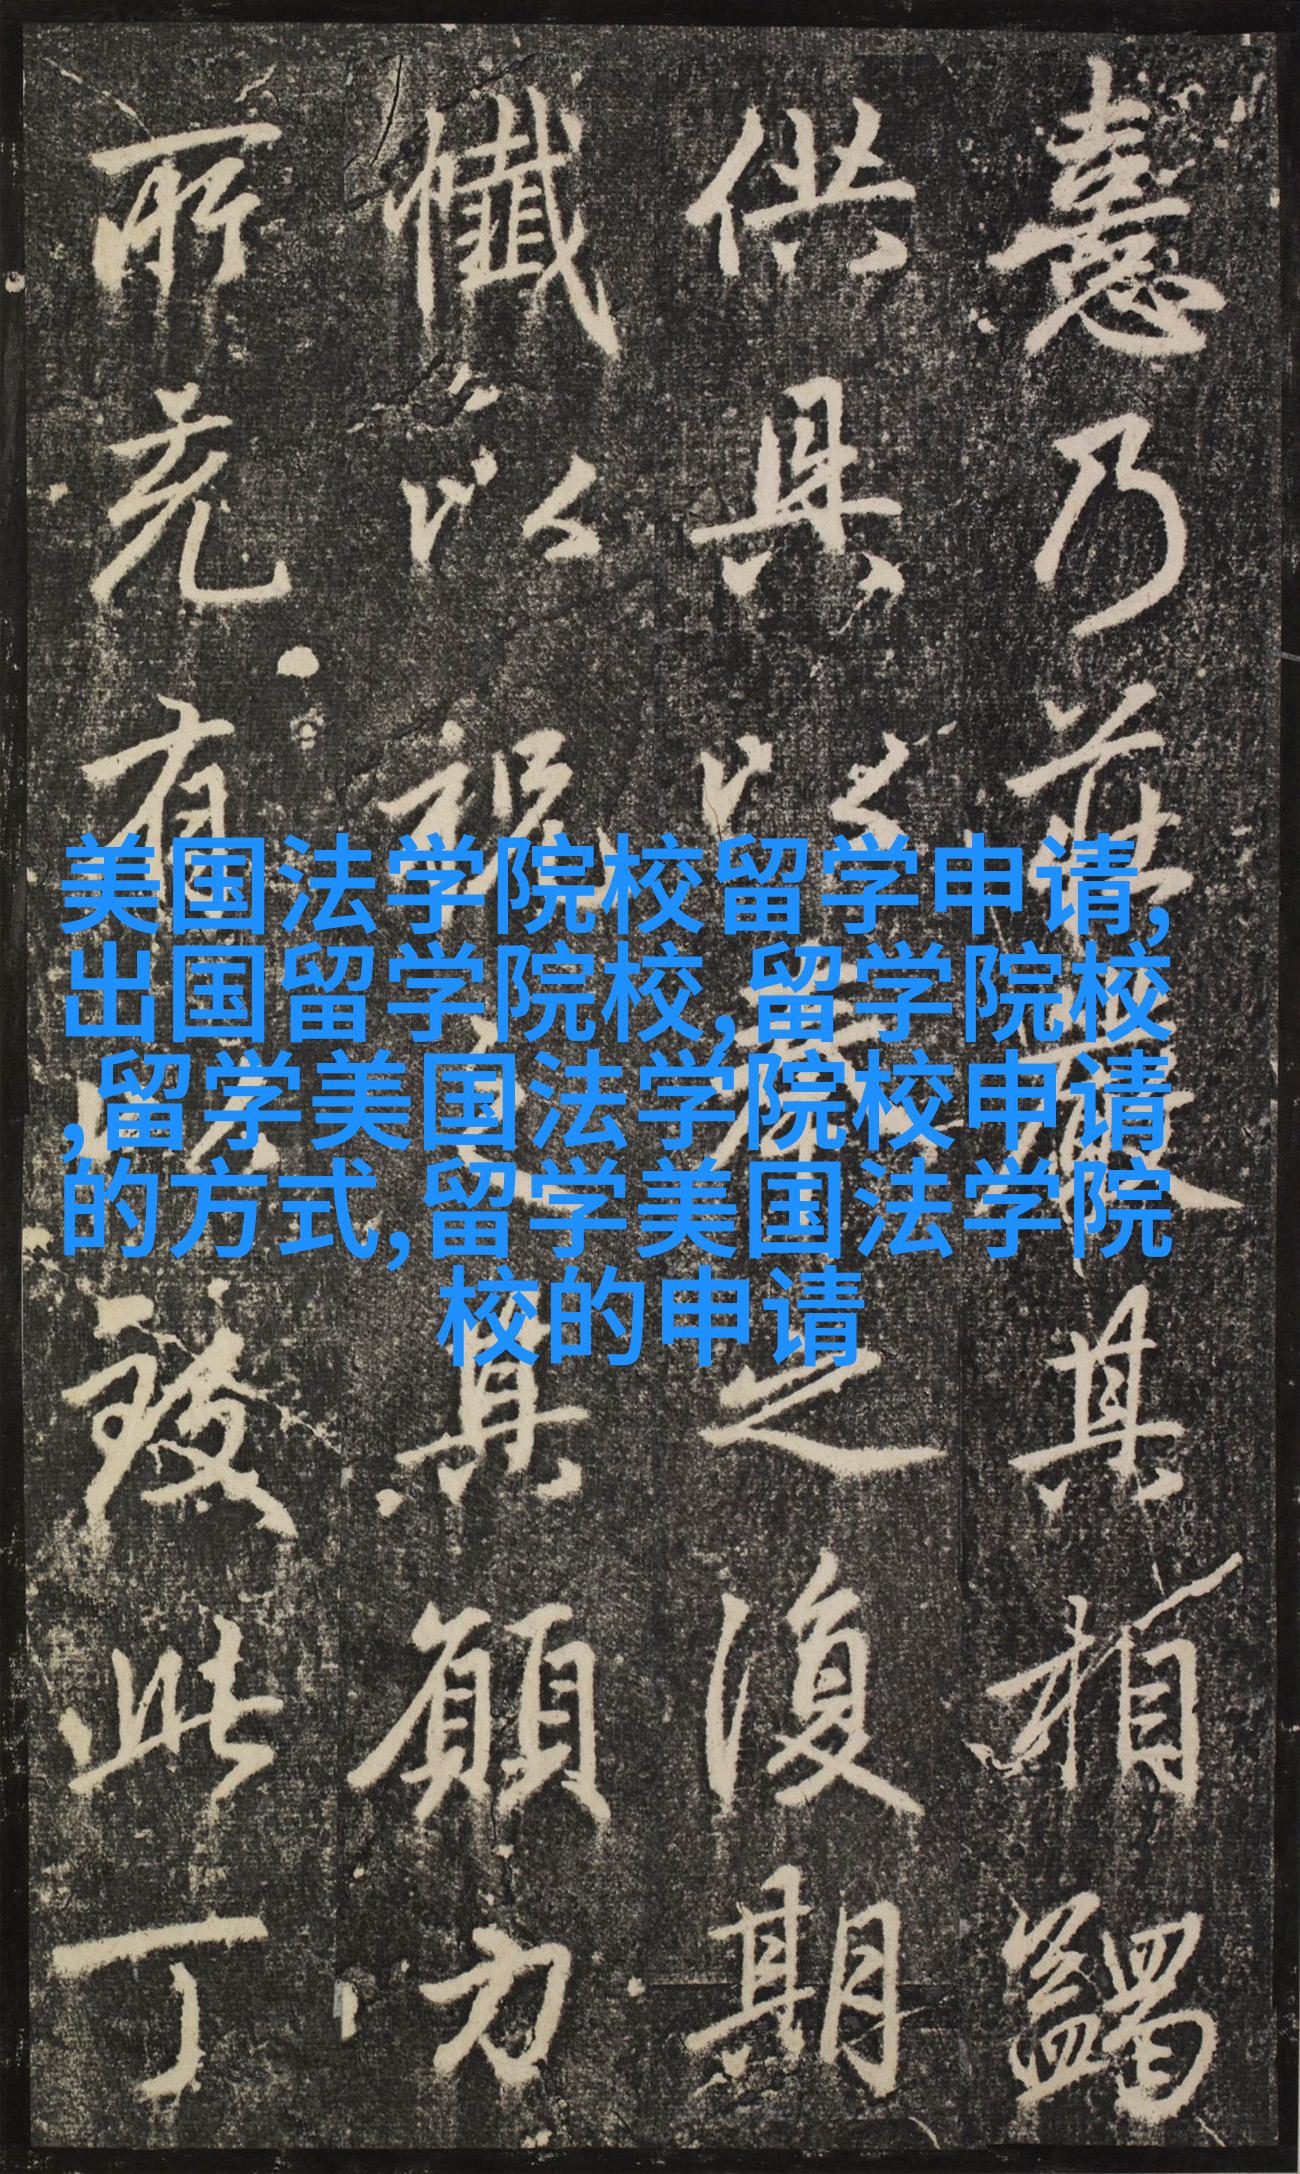 憙乃前取其相蠲
供具以養之復期
懺以祝之真願力
所克有以致此丁
美国法学院校留学申请,
出国留学院校,留学院校
,留学美国法学院校申请
的方式,留学美国法学院
校的申请